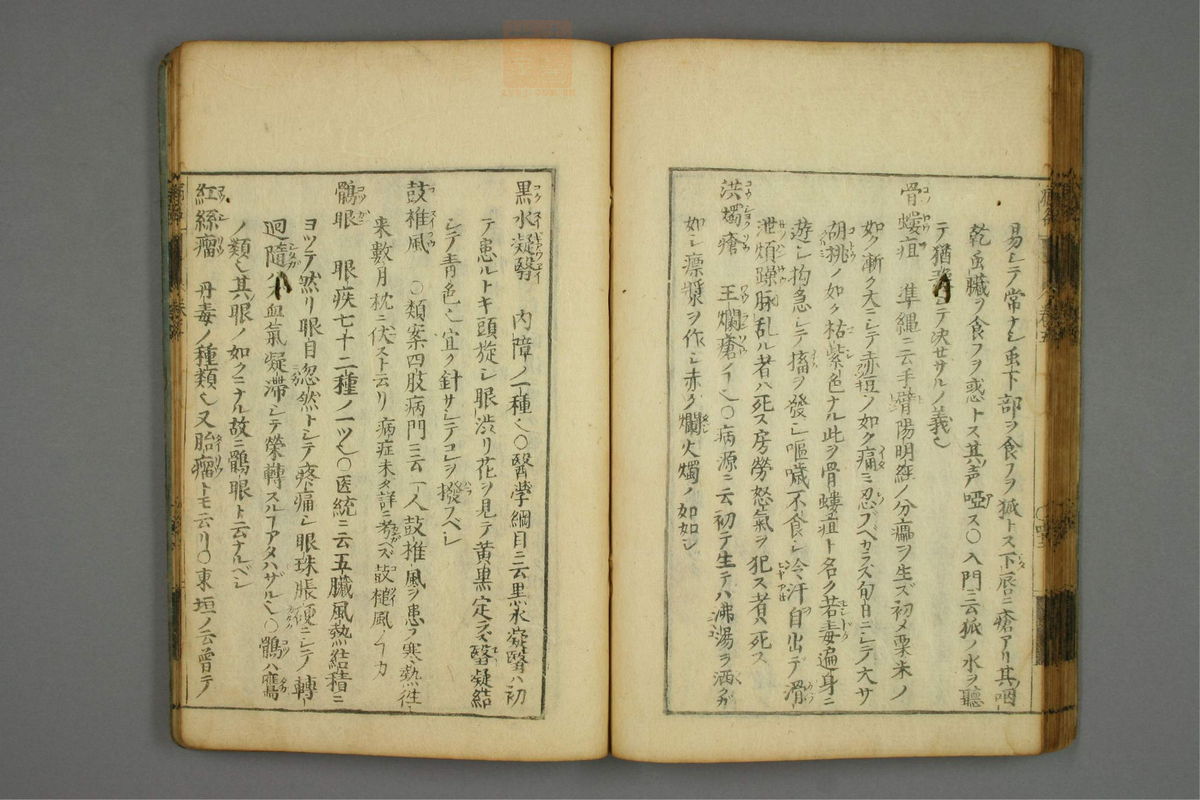 易シテ常ナシ虫下部ヲ食フヲ狐トス下唇ニ瘡アリ其咽
乾虫臓ヲ食フヲ惑トス其声啞ス〇入門ニ云狐ノ水ヲ聽
テ猶 テ决せサルノ義
骨蝼疽 準縄ニ云手臂陽明經ノ分癰ヲ生ズ初メ粟米ノ
如ク漸ク大ニシテ赤豆ノ如ク痛ミ忍ブベカラズ旬日ニシテ大サ
胡挑ノ如ク枯紫色ナル此ヲ骨蝼疽ト名ク若毒遍身ニ
遊シ拘急シテ搐ヲ發シ嘔 不食シ冷汗自出デ滑
泄煩躁脉乱ル者ハ死ス房勞怒氣ヲ犯ス者 死ス
洪燭瘡 王爛瘡ノ 〇病源ニ云初テ生テハ沸湯ヲ洒クガ
如シ瘭漿ヲ作シ赤ク爛火燭ノ如如シ
黒水凝翳 内障ノ一種 〇醫學綱目ニ云黒水凝翳ハ初
テ患ルトキ頭旋シ眼渋リ花ヲ見テ黄黒定ラズ翳凝結
シテ青色 宜ク針サシテコレヲ撥スベシ
鼓椎風 〇類案四肢病門ニ云一人鼓推風ヲ患フ寒熱往
来數月枕ニ伏ストニ云リ 病症未タ詳ニ考ベズ 鼓槌風ノ カ
鶻眼 眼疾七十二種ノ一ツ 〇医統ニ云五臓風熱結稽ニ
ヨツテ然リ眼目忽然トシテ疼痛シ眼珠脹硬ニシテ轉
廻隨ハズ血氣凝滯シテ榮轉スル アタハザル 〇鶻ハ鷹
ノ類 其眼ノ如クニナル故ニ鶻眼ト云ナルベシ
紅絲瘤 丹毒ノ種類 又胎瘤トモ云リ〇東垣ノ云曽テ